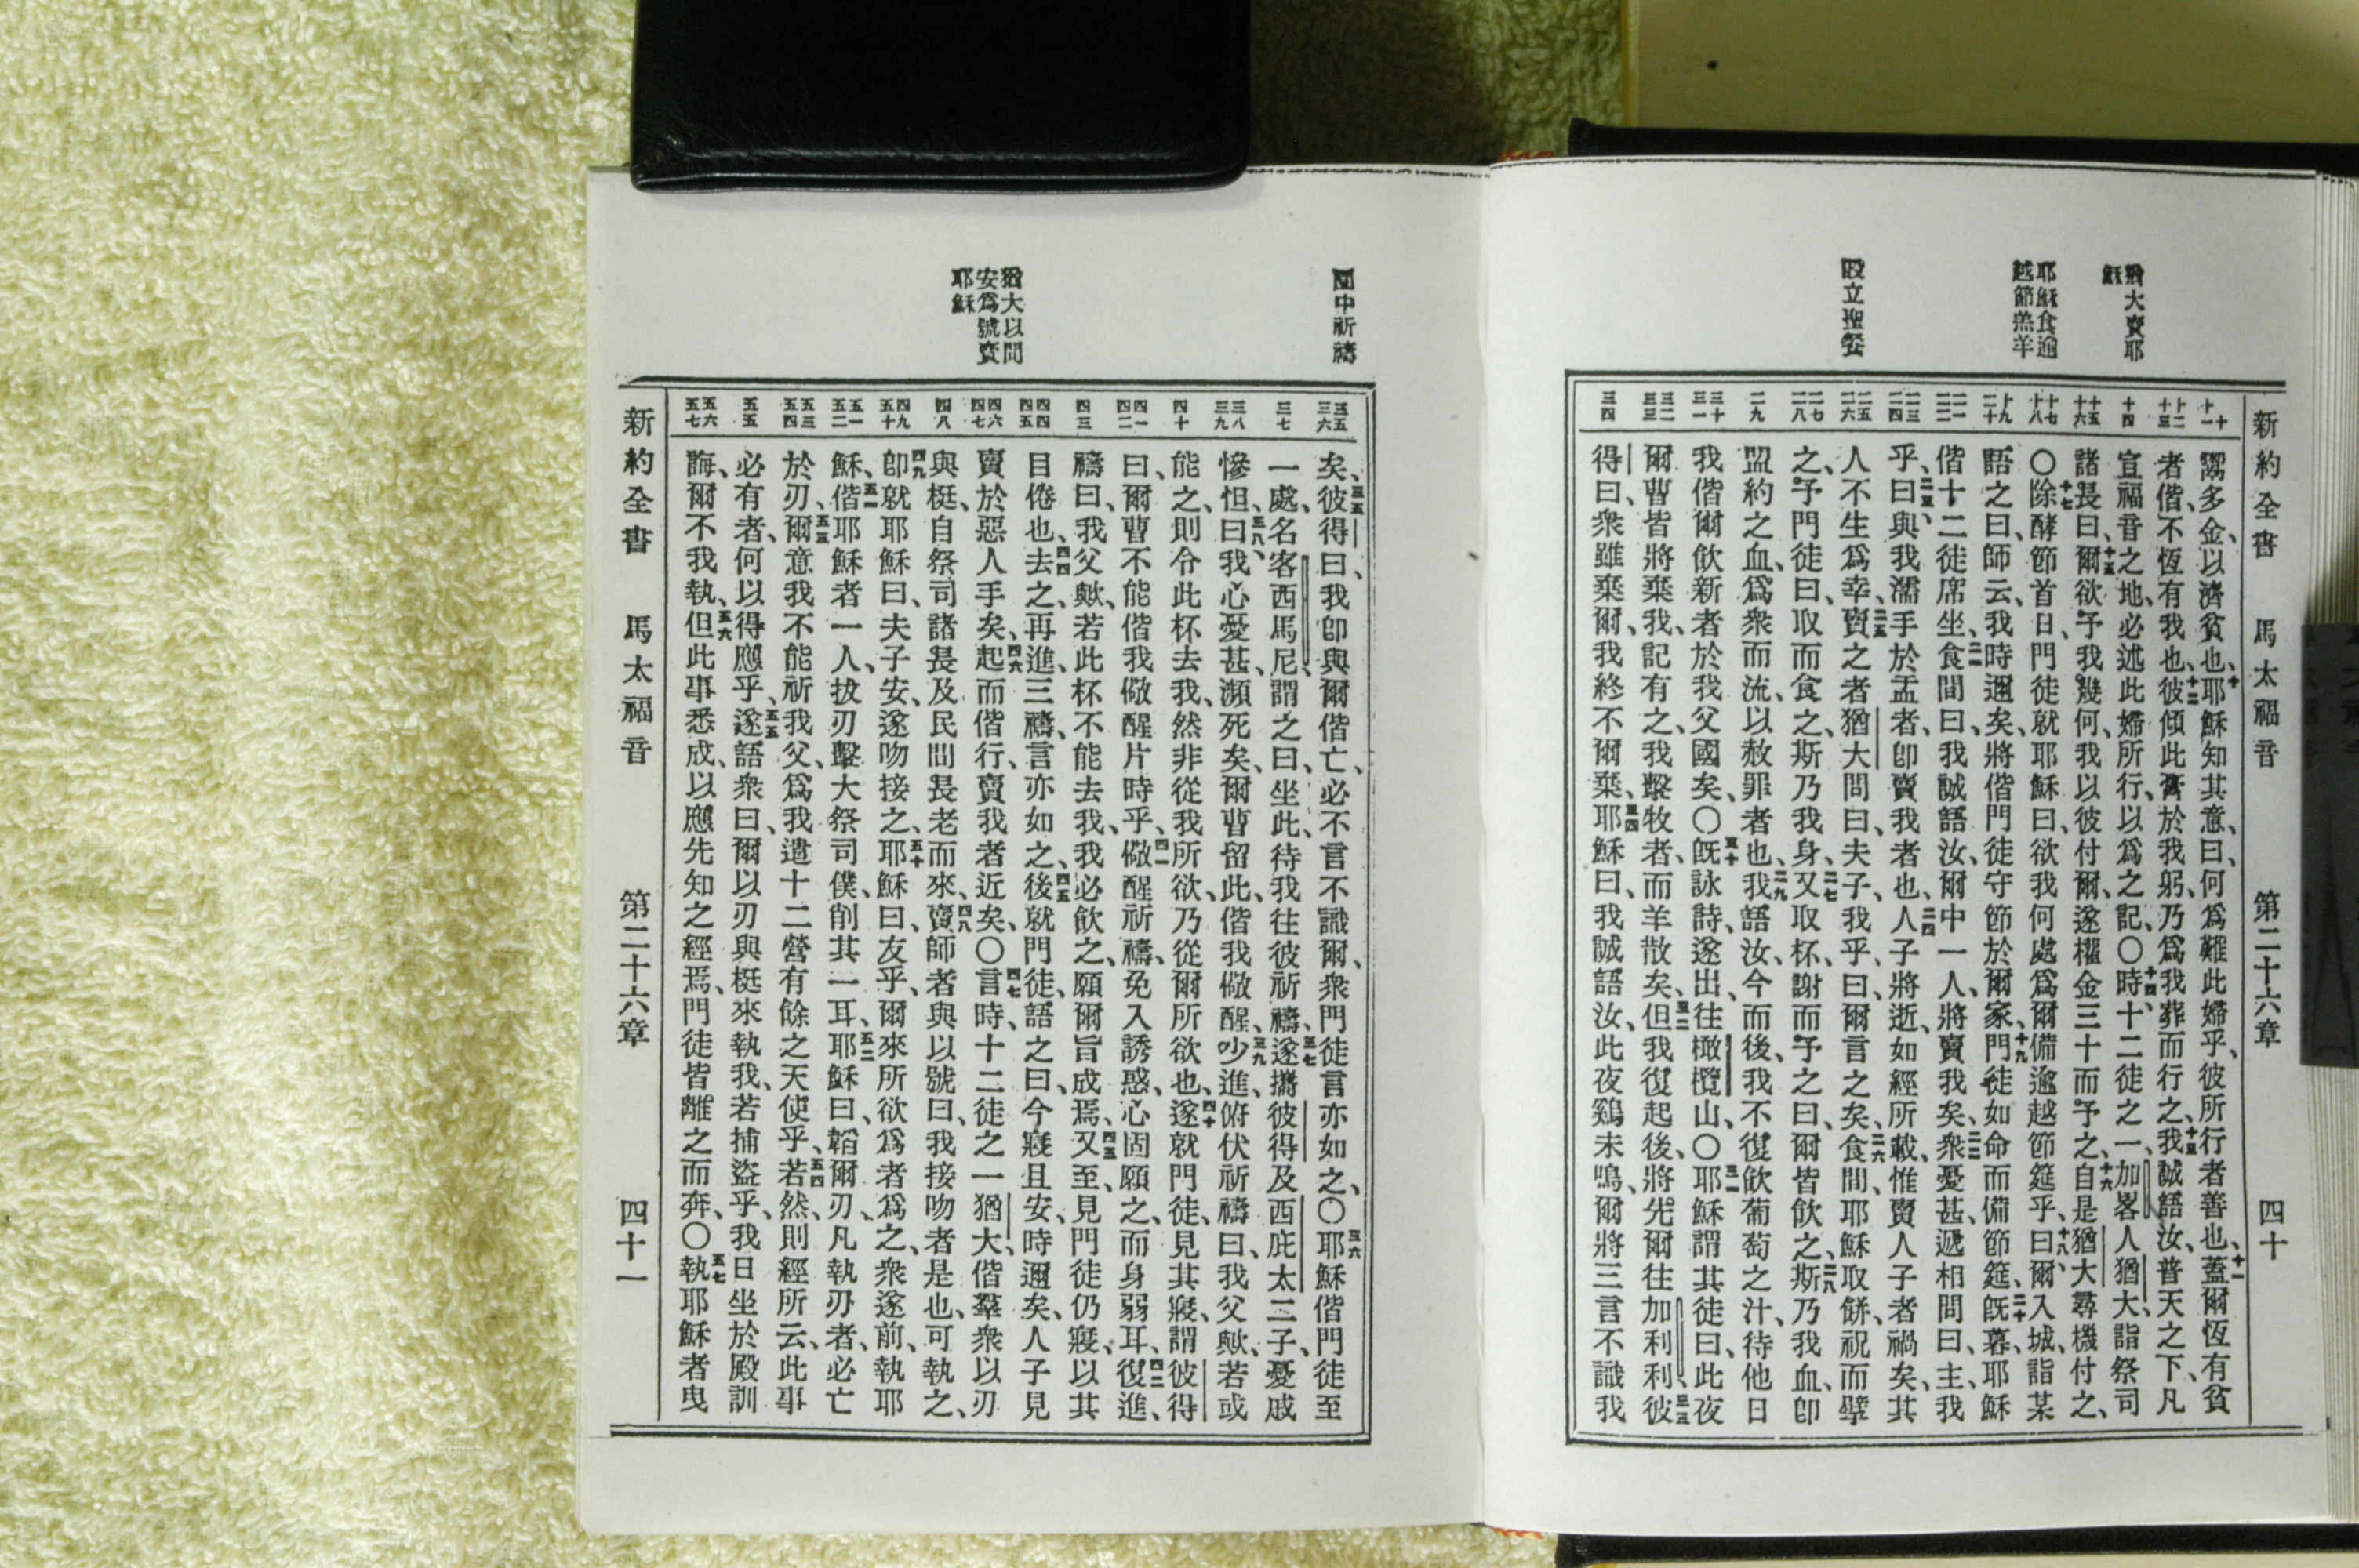 猶大賣耶
穌
耶穌食逾
越節羔羊
設立聖餐
新約全書 馬太福音 第二十六章 四十
十 十一 十二 十三 十四 十五 十六 十七 十八 十九 二十 二一 二二 二三 二四 二五 二六 二七 二八 二九 三十 三一 三二 三三 三四
鬻多金、以濟貧也、十耶穌知其意、曰、何爲難此婦乎、彼所行者善也、十一蓋爾恆有貧
者偕、不恆有我也、十二彼傾此膏於我躬、乃爲我葬而行之、十三我誠語汝、普天之下、凡
宣福音之地、必述此婦所行、以爲之記、〇十四時十二徒之一、加畧人猶大、詣祭司
諸長曰、十五爾欲予我幾何、我以彼付爾、遂權金三十而予之、十六自是猶大尋機付之、
〇十七除酵節首日、門徒就耶穌曰、欲我何處爲爾備逾越節筵乎、十八曰、爾入城、詣某
語之曰、師云、我時邇矣、將偕門徒守節於爾家、十九門徒如命而備節筵、二十旣暮、耶穌
偕十二徒席坐、二一食間曰、我誠語汝、爾中一人、將賣我矣、二二衆憂甚、遞相問曰、主、我
乎、二三曰、與我濡手於盂者、卽賣我者也、二四人子將逝、如經所載、惟賣人子者禍矣、其
人不生爲幸、二五賣之者猶大問曰、夫子、我乎、曰、爾言之矣、二六食間、耶穌取餅、祝而擘
之、予門徒曰、取而食之、斯乃我身、二七又取杯、謝而予之曰、爾皆飲之、二八斯乃我血、卽
盟約之血、爲衆而流、以赦罪者也、二九我語汝、今而後、我不復飲葡萄之汁、待他日
我偕爾飲新者於我父國矣、〇三十旣詠詩、遂出、往橄欖山、〇三一耶穌謂其徒曰、此夜
爾曹皆將棄我、記有之、我擊牧者、而羊散矣、三二但我復起後、將先爾往加利利、三三彼
得曰、衆雖棄爾、我終不爾棄、三四耶穌曰、我誠語汝、此夜鷄未鳴、爾將三言不識我
園中祈禱
猶大以問
安爲號賣
耶穌
三五 三六 三七 三八 三九 四十 四一 四二 四三 四四 四五 四六 四七 四八 四九 五十 五一 五二 五三 五四 五五 五六 五七
矣、三五彼得曰、我卽與爾偕亡、必不言不識爾、衆門徒言亦如之、〇三六耶穌偕門徒至
一處、名客西馬尼、謂之曰、坐此、待我往彼祈禱、三七遂攜彼得及西庇太二子、憂戚
慘怛、三八曰、我心憂甚、瀕死矣、爾曹留此、偕我儆醒、三九少進、俯伏祈禱曰、我父歟、若或
能之、則令此杯去我、然非從我所欲、乃從爾所欲也、四十遂就門徒、見其寢、謂彼得
曰、爾曹不能偕我儆醒片時乎、四一儆醒祈禱、免入誘惑、心固願之、而身弱耳、四二復進、
禱曰、我父歟、若此杯不能去我、我必飲之、願爾旨成焉、四三又至、見門徒仍寢、以其
目倦也、四四去之、再進、三禱、言亦如之、四五後就門徒、語之曰、今寢且安、時邇矣、人子見
賣於惡人手矣、四六起而偕行、賣我者近矣、〇四七言時、十二徒之一猶大、偕羣衆以刃
與梃、自祭司諸長及民間長老而來、四八賣師者與以號曰、我接吻者是也、可執之、
四九卽就耶穌曰、夫子安、遂吻接之、五十耶穌曰、友乎、爾來所欲爲者爲之、衆遂前、執耶
穌、五一偕耶穌者一人、拔刃擊大祭司僕、削其一耳、五二耶穌曰、韜爾刃、凡執刃者、必亡
於刃、五三爾意我不能祈我父、爲我遣十二營有餘之天使乎、五四若然、則經所云、此事
必有者、何以得應乎、五五遂語衆曰、爾以刃與梃來執我、若捕盜乎、我日坐於殿訓
誨、爾不我執、五六但此事悉成、以應先知之經焉、門徒皆離之而奔、〇五七執耶穌者曳
新約全書 馬太福音 第二十六章 四十一